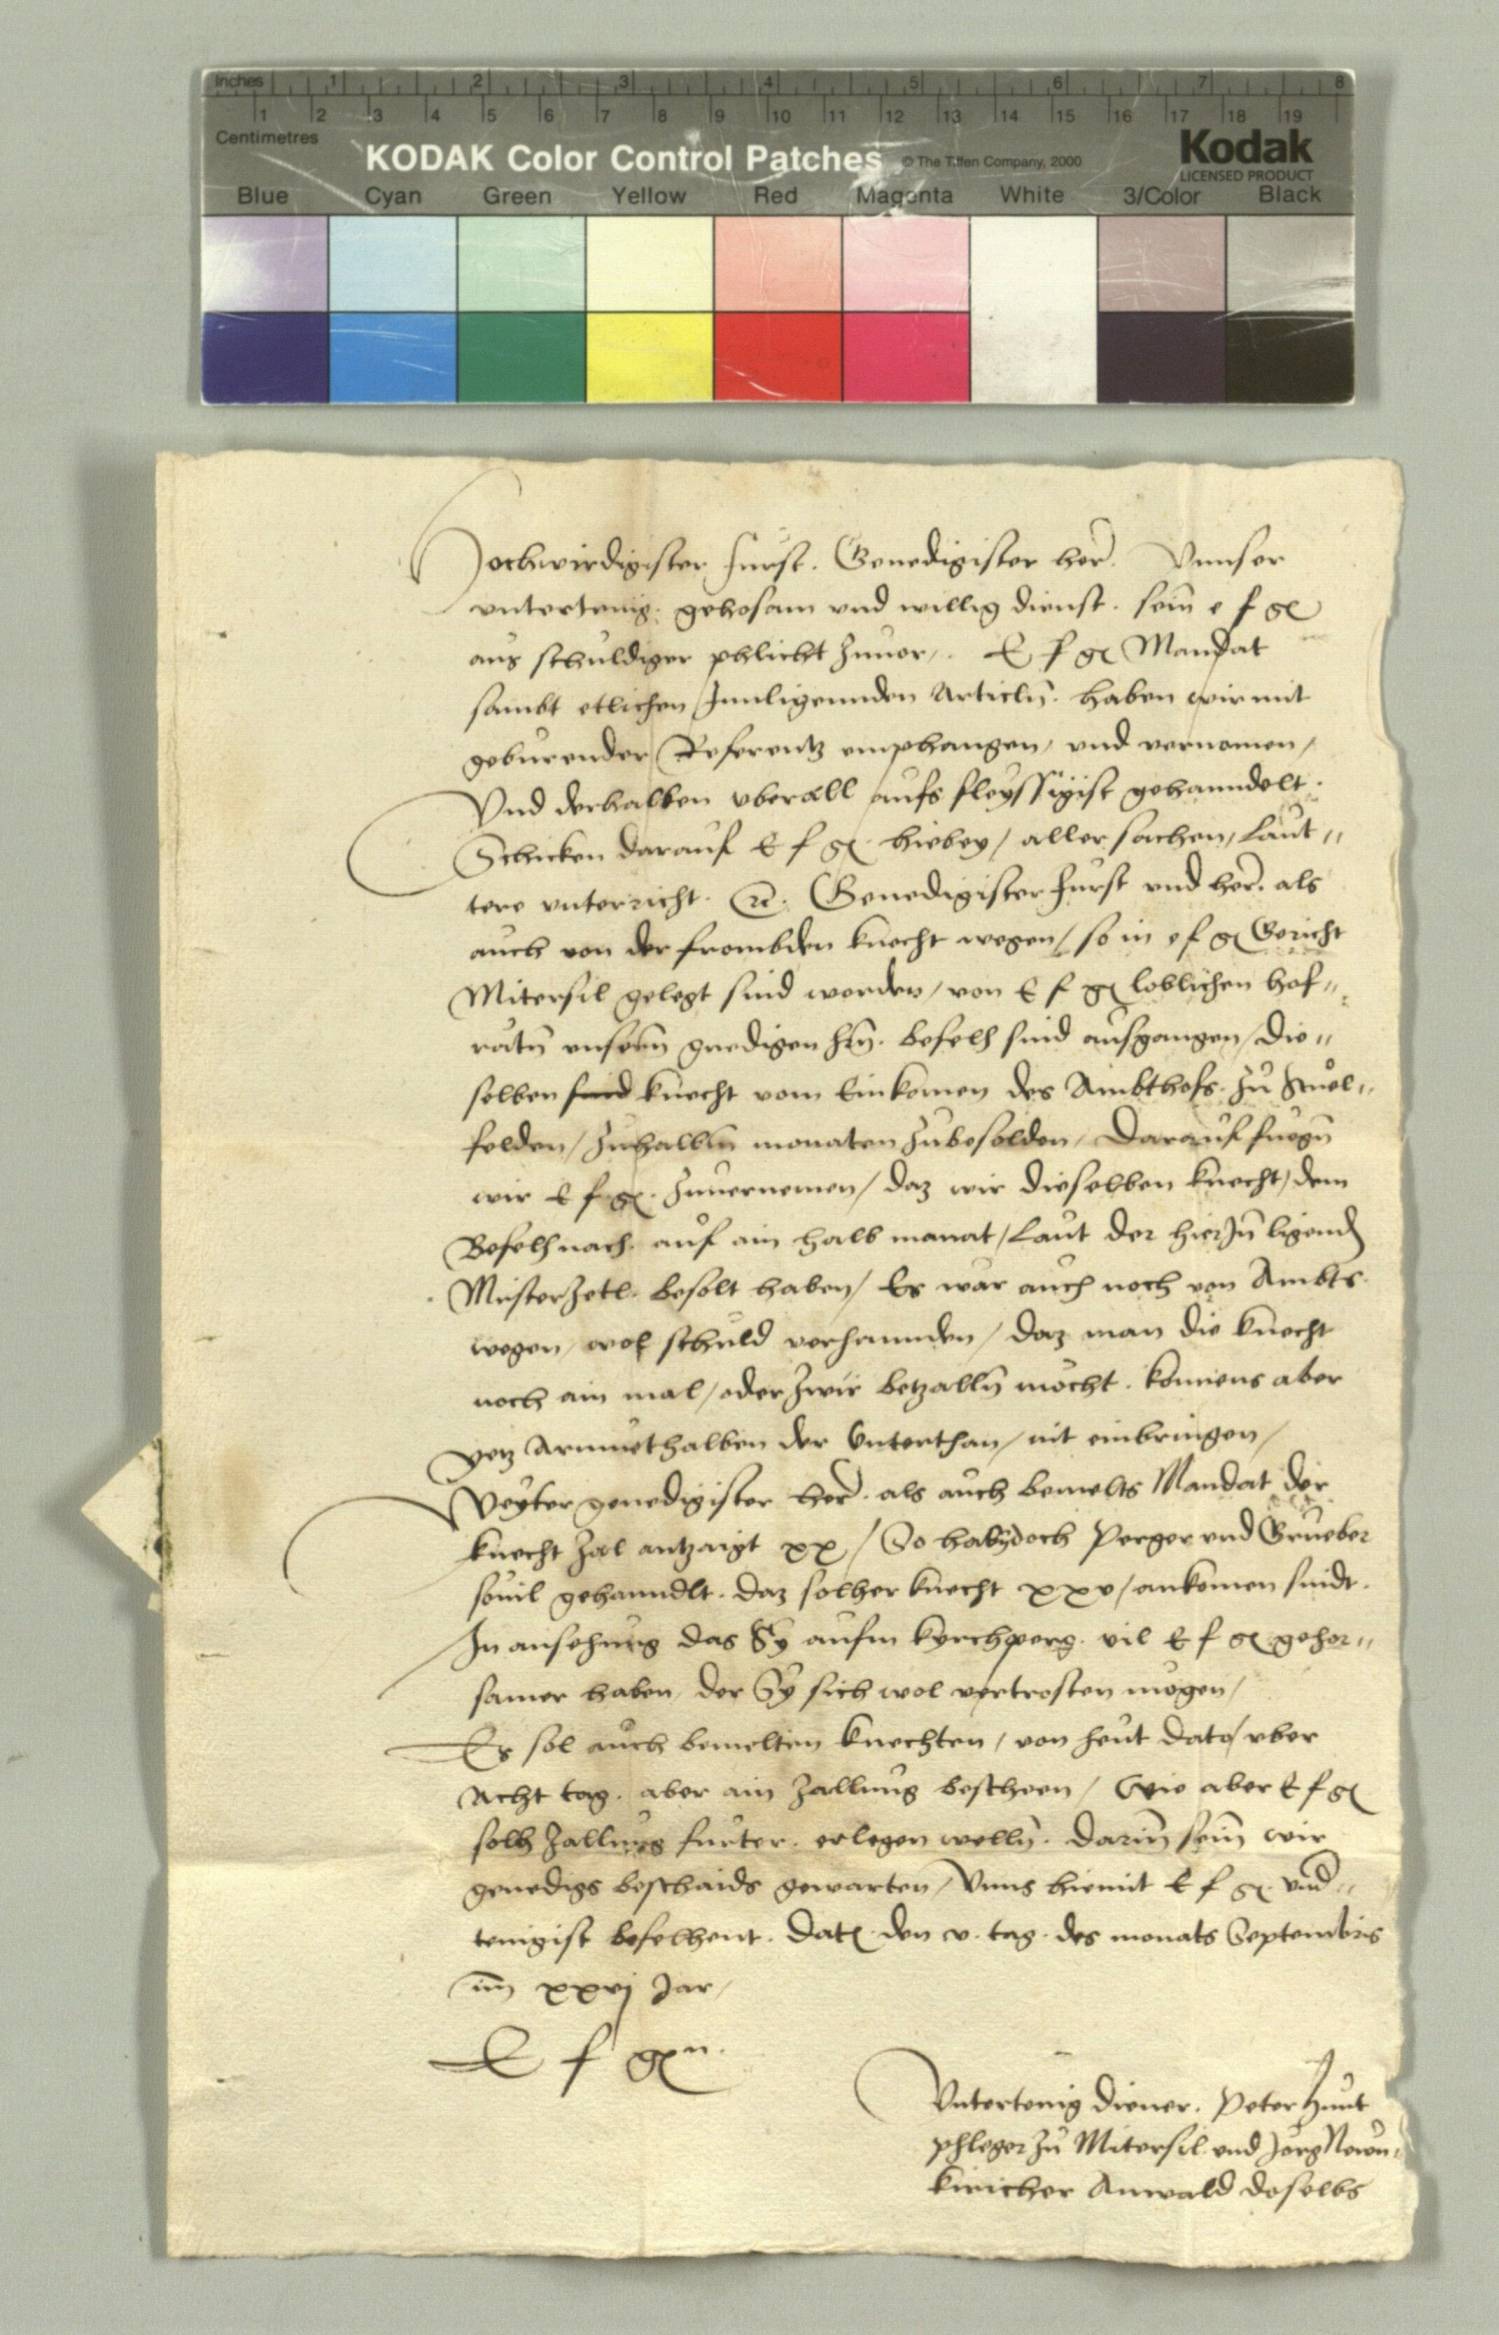 Inches 1 2 3 4 5 6 7 8
1 2 3 4 5 6 7 8 9 10 11 12 13 14 15 16 17 18 19
Centimetres
KODAK Color Control Patches © The Tiffen Company, 2000 Kodak
LICENSED PRODUCT
Blue Cyan Green Yellow Red Magenta White 3/Color Black
Hochwirdigister Fürst. Genedigister her. Vnnser
vntertenig. gehosam vnd willig dienst. sein e f g
aus schuldiger phlicht zuuor. E f g Mandat
sambt etlichen Innligennden Articln. haben wir mit
gebürender Referentz emphangen, vnd vernomen,
Vnd derhalben vberall aufs fleyssigist gehanndelt.
Schicken darauf E f g hiebey, aller sachen, laut„
tere vnterricht. etc. Genedigister Fürst vnd her. als
auch von der frombden knecht wegen, so in e f g Gericht
Mitersil gelegt sind worden, von E f g loblichen hof„
rätn vnsern gnedigen hern. befelh sind ausgangen, die„
selben sind knecht vom Einkomen des Ambthofs. zu Stuol„
felden, zu halben monaten zubesolden, Darauf fuegn
wir E f g. zuuernemen, daz wir dieselben knecht, dem
Befelh nach. auf ain halb monat, laut der hierIn ligend
Musterzetl. besolt haben, Es wär auch noch von Ambts
wegen, wol schuld verhannden, daz man die knecht
noch ain mal, oder zwir betzalln möcht. komens aber
yetz Armuethalben der Vnterthan, nit einbringen,
Weyter genedigister her. als auch bemelts Mandat der
knecht zal antzaigt xx, So haben doch Perger vnd Grueber
souil gehanndlt. daz solher knecht xxv, ankomen sindt.
In ansehung das Sy aufm kyrchperg. vil E f g gehor„
samer haben, der Sy sich wol vertrosten mögen,
Es sol auch bemelten knechten, von heut dato, vber
Acht tag. aber ain zallung bescheen, Wie aber E f g
solh zallung fürter. erlegen welln. darin sein wir
genedigs beschaids gewarten, Vnns hiemit E f g. vnd„
tenigist befelhent. Dat. den v. tag. des monats Septembris
im xxvj Jar,
E f gn.
Vntertenig diener. Peter Hunt
phleger zu Mitersil. vnd Jörg Newn„
kiricher Anwald daselbs